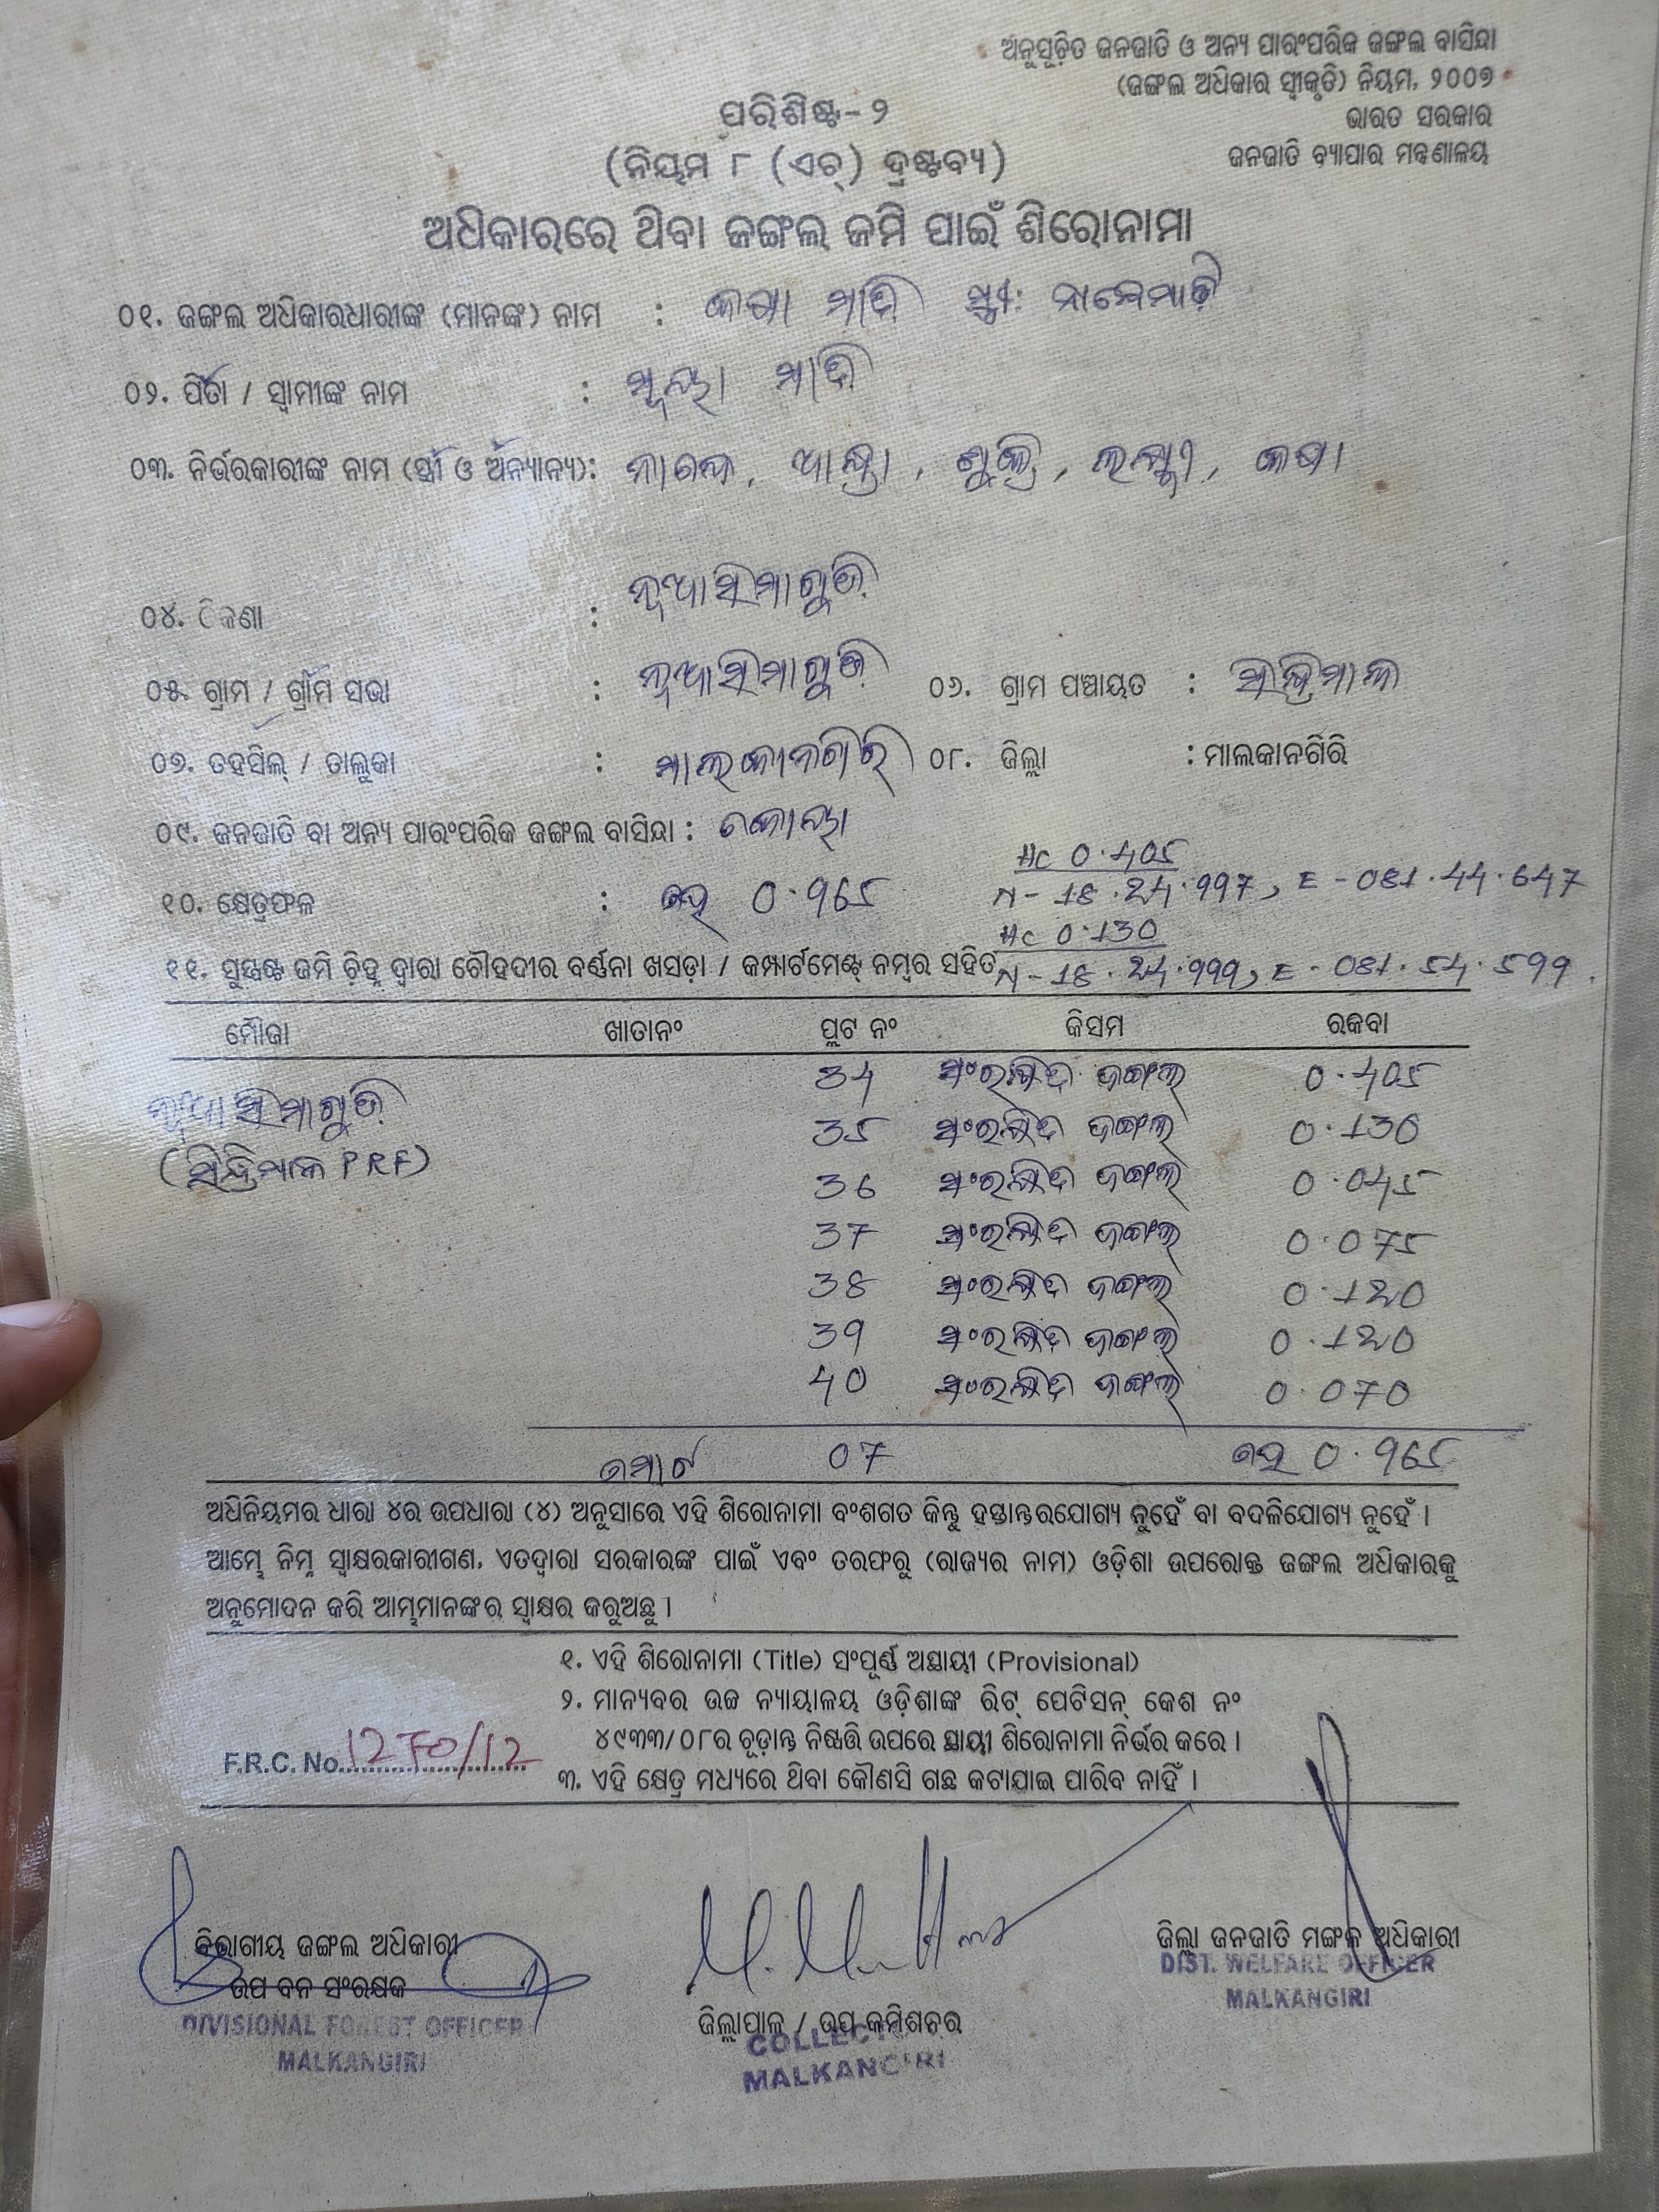 ଅନୁସୂଚିତ ଜନଜାତି ଓ ଅନ୍ୟ ପାରଂପରିକ ଜଙ୍ଗଲ ବାସିନ୍ଦା
(ଜଙ୍ଗଲ ଅଧିକାର ସ୍ୱୀକୃତି) ନିୟମ, ୨୦୦୭
ଭାରତ ସରକାର
ଜନଜାତି ବ୍ୟାପାର ମନ୍ତ୍ରଣାଳୟ
ପରିଶିଷ୍ଟ-୨
(ନିୟମ ୮ (ଏଚ୍) ଦ୍ରଷ୍ଟବ୍ୟ)
ଅଧିକାରରେ ଥିବା ଜଙ୍ଗଲ ଜମି ପାଇଁ ଶିରୋନାମା
୦୧. ଜଙ୍ଗଲ ଅଧିକାରଧାରୀଙ୍କ (ମାନଙ୍କ) ନାମ : ମାଢ଼ି ସ୍ତ୍ରୀ:
୦୨. ପିତା / ସ୍ୱାମୀଙ୍କ ନାମ : ମାଢ଼ି
୦୩. ନିର୍ଭରକାରୀଙ୍କ ନାମ (ସ୍ତ୍ରୀ ଓ ଅନ୍ୟାନ୍ୟ):
୦୪. ଠିକଣା : ନୂଆସିମାଗୁଡ଼ି
୦୫. ଗ୍ରାମ / ଗ୍ରାମ ସଭା : ନୂଆସିମାଗୁଡ଼ି ୦୬. ଗ୍ରାମ ପଞ୍ଚାୟତ : ସିନ୍ଦ୍ରିମାଳ
୦୭. ତହସିଲ୍ / ତାଲୁକା : ମାଲକାନଗିରି ୦୮. ଜିଲ୍ଲା : ମାଲକାନଗିରି
୦୯. ଜନଜାତି ବା ଅନ୍ୟ ପାରଂପରିକ ଜଙ୍ଗଲ ବାସିନ୍ଦା : କୋୟା
Hc 0.405
୧୦. କ୍ଷେତ୍ରଫଳ : ହେ 0.965 N-18.24.997, E-081.44.647
Hc 0.130
୧୧. ସୁସ୍ପଷ୍ଟ ଜମି ଚିହ୍ନ ଦ୍ୱାରା ଚୌହଦୀର ବର୍ଣ୍ଣନା ଖସଡ଼ା / କମ୍ପାର୍ଟମେଣ୍ଟ୍ ନମ୍ବର ସହିତ N-18.24.999, E-081.54.599.
ମୌଜା ଖାତାନଂ ପ୍ଲଟ ନଂ କିସମ ରକବା
ନୂଆସିମାଗୁଡ଼ି 34 ସଂରକ୍ଷିତ ଜଙ୍ଗଲ 0.405
35 ସଂରକ୍ଷିତ ଜଙ୍ଗଲ 0.130
(ସିନ୍ଦ୍ରିମାଳ PRF) 36 ସଂରକ୍ଷିତ ଜଙ୍ଗଲ 0.045
37 ସଂରକ୍ଷିତ ଜଙ୍ଗଲ 0.075
38 ସଂରକ୍ଷିତ ଜଙ୍ଗଲ 0.120
39 ସଂରକ୍ଷିତ ଜଙ୍ଗଲ 0.120
40 ସଂରକ୍ଷିତ ଜଙ୍ଗଲ 0.070
ମୋଟ 07 ହେ 0.965
ଅଧିନିୟମର ଧାରା ୪ର ଉପଧାରା (୪) ଅନୁସାରେ ଏହି ଶିରୋନାମା ବଂଶଗତ କିନ୍ତୁ ହସ୍ତାନ୍ତରଯୋଗ୍ୟ ନୁହେଁ ବା ବଦଳିଯୋଗ୍ୟ ନୁହେଁ ।
ଆମ୍ଭେ ନିମ୍ନ ସ୍ୱାକ୍ଷରକାରୀଗଣ, ଏତଦ୍ୱାରା ସରକାରଙ୍କ ପାଇଁ ଏବଂ ତରଫରୁ (ରାଜ୍ୟର ନାମ) ଓଡ଼ିଶା ଉପରୋକ୍ତ ଜଙ୍ଗଲ ଅଧିକାରକୁ
ଅନୁମୋଦନ କରି ଆମ୍ଭମାନଙ୍କର ସ୍ୱାକ୍ଷର କରୁଅଛୁ ।
୧. ଏହି ଶିରୋନାମା (Title) ସଂପୂର୍ଣ୍ଣ ଅସ୍ଥାୟୀ (Provisional)
୨. ମାନ୍ୟବର ଉଚ୍ଚ ନ୍ୟାୟାଳୟ ଓଡ଼ିଶାଙ୍କ ରିଟ୍ ପେଟିସନ୍ କେଶ ନଂ
୪୯୩୩/୦୮ର ଚୂଡ଼ାନ୍ତ ନିଷ୍ପତ୍ତି ଉପରେ ସ୍ଥାୟୀ ଶିରୋନାମା ନିର୍ଭର କରେ ।
F.R.C. No. 1270/12
୩. ଏହି କ୍ଷେତ୍ର ମଧ୍ୟରେ ଥିବା କୌଣସି ଗଛ କଟାଯାଇ ପାରିବ ନାହିଁ ।
ବିଭାଗୀୟ ଜଙ୍ଗଲ ଅଧିକାରୀ
ଉପ ବନ ସଂରକ୍ଷକ
DIVISIONAL FOREST OFFICER
MALKANGIRI
ଜିଲ୍ଲାପାଳ / ଉପ କମିଶନର
COLLECTOR
MALKANGIRI
ଜିଲ୍ଲା ଜନଜାତି ମଙ୍ଗଳ ଅଧିକାରୀ
DIST. WELFARE OFFICER
MALKANGIRI